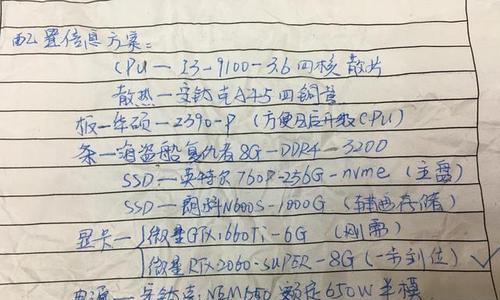 配置信息方案:
CPU — I3-9100-3.6 四核 散片
散热 — 安钛克 A45 四铜管
板 — 华硕 — Z390-P (方便日后升级CPU)
条 — 海盗船 复仇者 8G-DDR4-3200
SSD — 英特尔 760P-256G-nvme (主盘)
SSD — 朗科 N600S-1000G (辅助存储)
显卡 — 微星GTX1660Ti-6G (刚需)
微星RTX2060-SUPER-8G (一步到位) ✓
电源 — 安钛克: NEM650 额定650W 半模